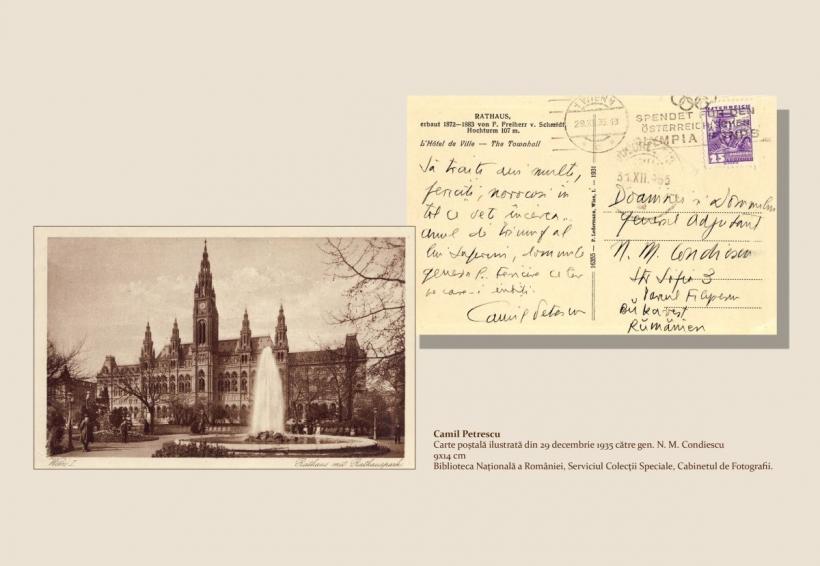 RATHAUS,
erbaut 1872—1883 von F. Freiherr v. Schmidt,
Hochturm 107 m.
L'Hôtel de Ville — The Townhall
Să traiți ani mulți,
fericiți, norocoși în
tot ce veți încerca..
anul de triumf al
lui
generos
Camil Petrescu
16285 — P. Ledermann, Wien, I. — 1931
WIEN
29.XII.35
SPENDET FÜR DEN
ÖSTERREICHISCHEN
OLYMPIA FONDS
ÖSTERREICH
25
31.XII.935
Doamnei și Domnului
General Adjutant
N. M. Condiescu
Str Sofia 3
Parcul Filipescu
Bukarest
Rumänien
Wien I.
Rathaus mit Rathauspark
Camil Petrescu
Carte poștală ilustrată din 29 decembrie 1935 către gen. N. M. Condiescu
9x14 cm
Biblioteca Națională a României, Serviciul Colecții Speciale, Cabinetul de Fotografii.